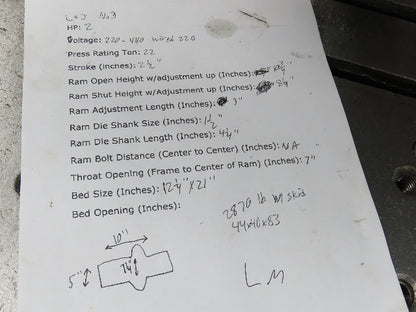 L+J No3
HP: 2
Voltage: 220-440 wired 220
Press Rating Ton: 22
Stroke (Inches): 2½"
Ram Open Height w/adjustment up (Inches):
Ram Shut Height w/adjustment up (Inches):
Ram Adjustment Length (Inches): 3"
Ram Die Shank Size (Inches): 1½"
Ram Die Shank Length (Inches):
Ram Bolt Distance (Center to Center) (Inches): NA
Throat Opening (Frame to Center of Ram) (Inches): 7"
Bed Size (Inches): 12¼" X 21"
Bed Opening (Inches):
2870 lb w skid
44x40x83
10"
5"
7¼"